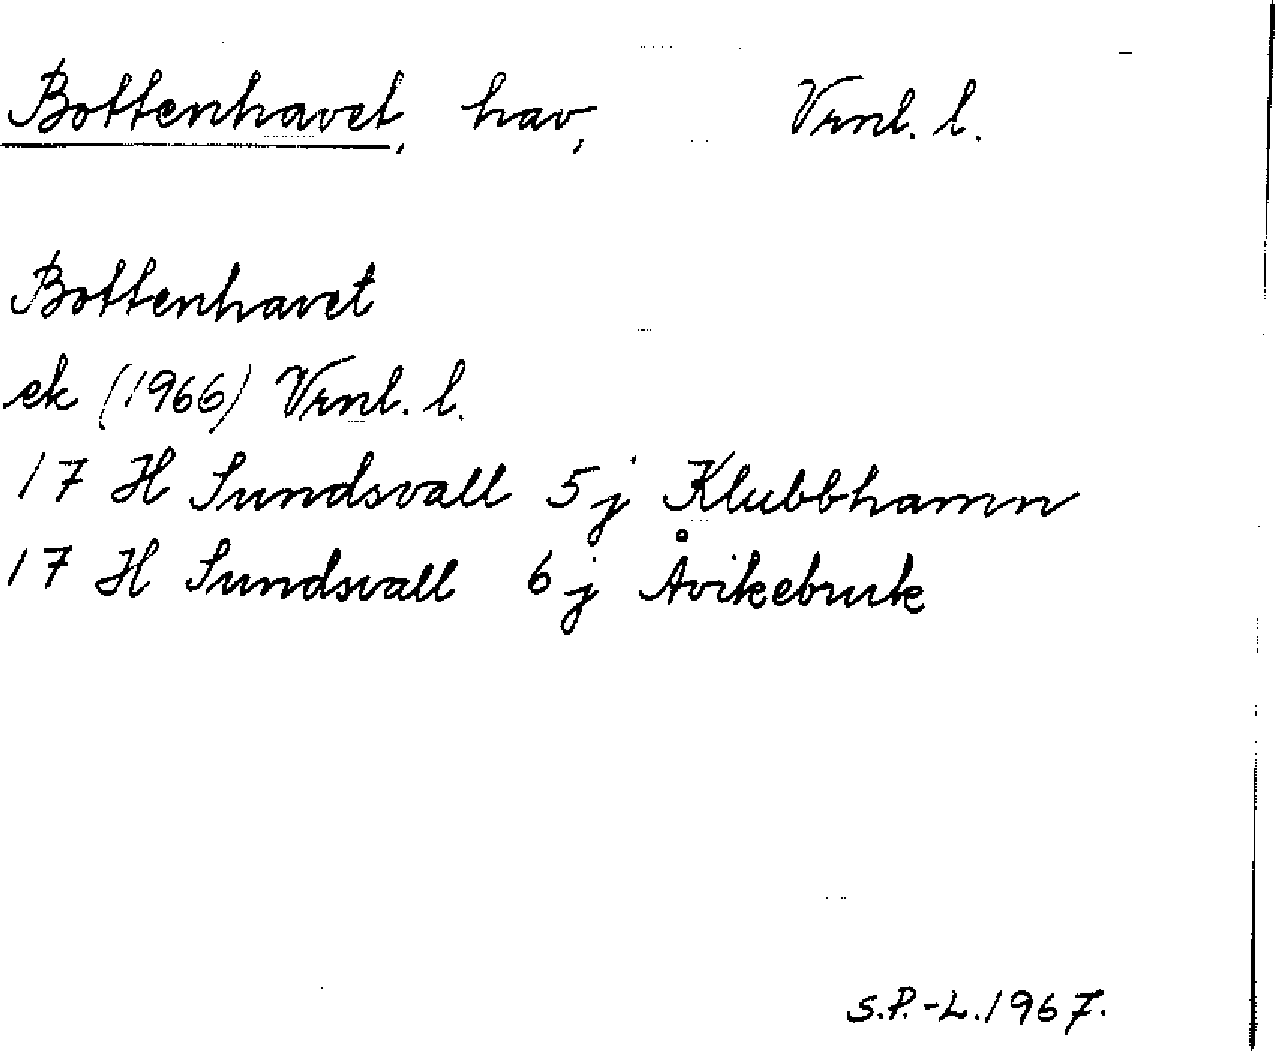 Bottenhavet, hav, Vrnl. l.
Bottenhavet
ek (1966) Vrnl. l.
17 H Sundsvall 5 j Klubbhamn
17 H Sundsvall 6 j Åvikebruk
S.P.-L. 1967.